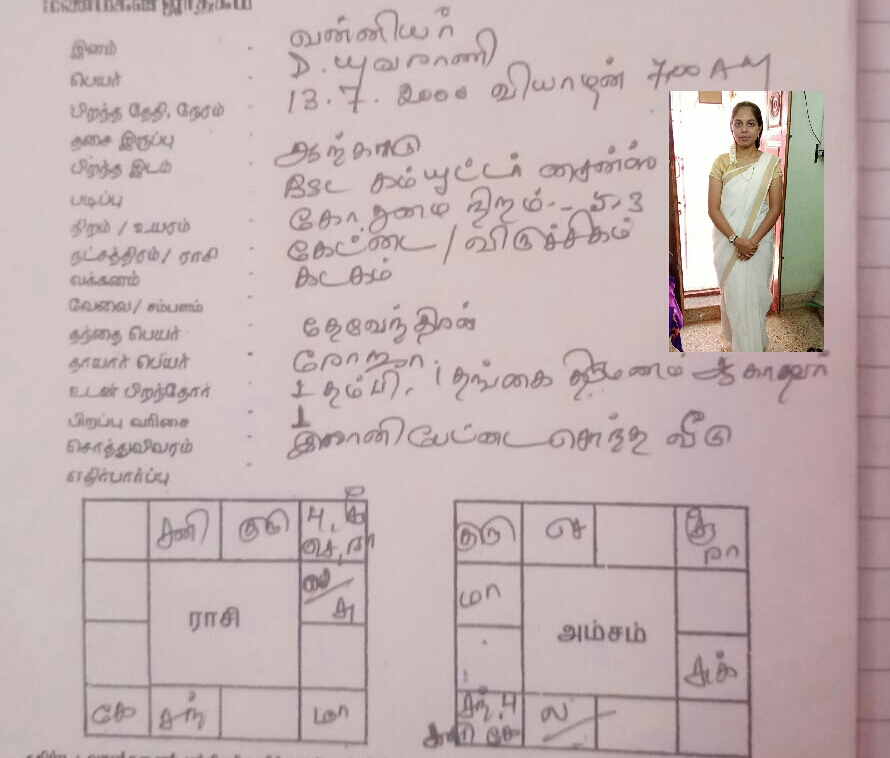 மணமகள் ஜாதகம்
இனம் - வன்னியர்
பெயர் - D. யுவராணி
பிறந்த தேதி, நேரம் - 13.7.2000 வியாழன் 7.00 AM
தசை இருப்பு -
பிறந்த இடம் - ஆற்காடு
படிப்பு - BSc கம்யூட்டர் சைன்ஸ்
நிறம் / உயரம் - கோதுமை நிறம். - 5.3
நட்சத்திரம் / ராசி - கேட்டை / விருச்சிகம்
லக்கனம் - கடகம்
வேலை / சம்பளம் -
தந்தை பெயர் - தேவேந்திரன்
தாயார் பெயர் - ரோஜா.
உடன் பிறந்தோர் - 1 தம்பி, 1 தங்கை திருமணம் ஆகாதவர்
பிறப்பு வரிசை - 1
சொத்துவிவரம் - இராணிபேட்டை சொந்த வீடு
எதிர்பார்ப்பு -
சனி குரு பு, சூ
செ, ரா
ல/
சு
ராசி
கே சந் மா
குரு செ சூ
ரா
மா
அம்சம்
சுக்
சந், பு ல/
சனி கே